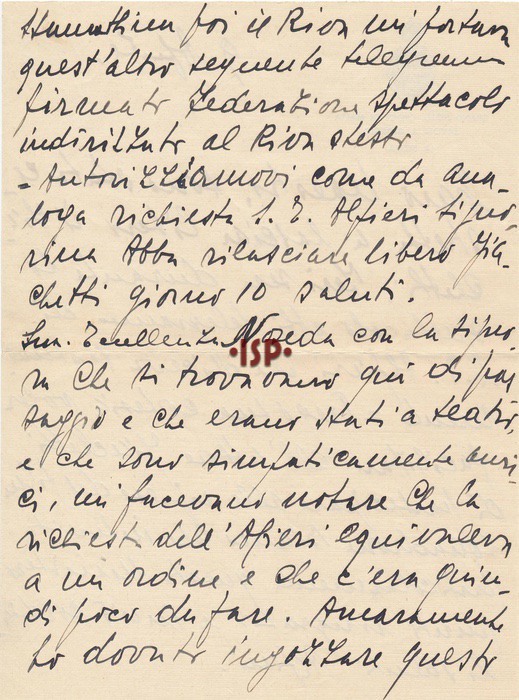 Stamathina poi il Riva mi portava
quest'altro seguente telegramma
firmato Federazione Spettacolo
indirizzato al Riva stesso
- Autorizziamovi come da ana-
loga richiesta S. E. Alfieri signo-
rina Abba rilasciare libero Gia-
chetti giorno 10 saluti.
Sua Eccellenza Noseda con la signo-
ra che si trovavano qui di pas
saggio e che erano stati a teatro,
e che sono simpaticamente ami-
ci, mi facevano notare che la
richiesta dell'Alfieri equivaleva
a un ordine e che c'era quin-
di poco da fare. Amaramente
ho dovuto ingozzare questo
·ISP·